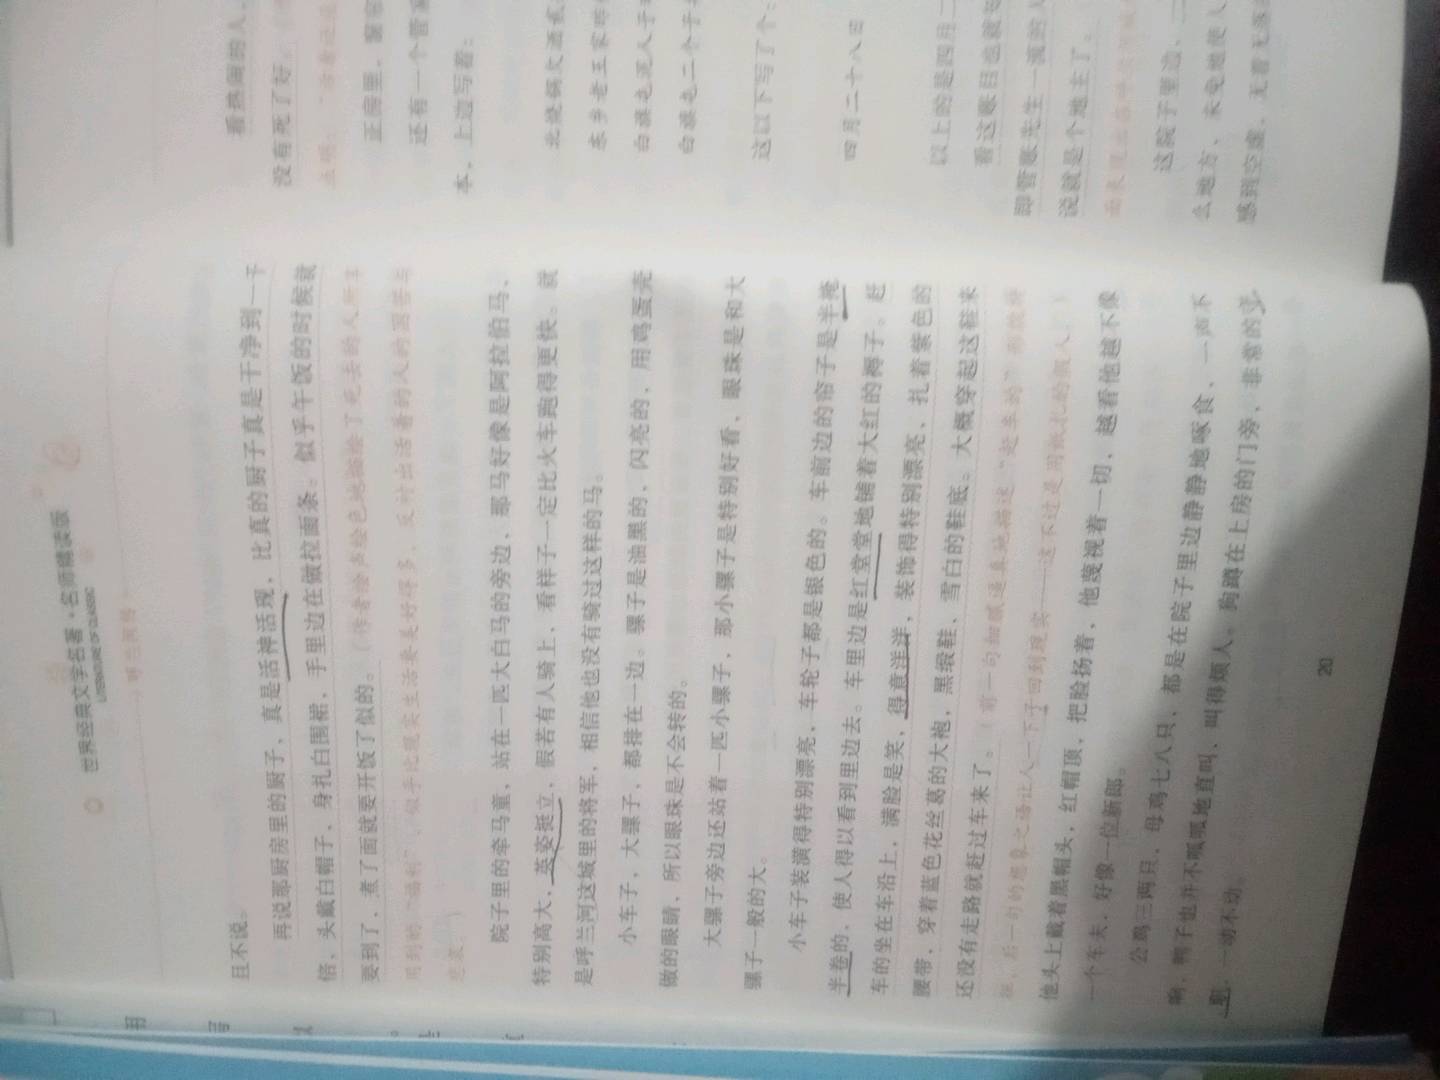 世界经典文学名著·名师精读版
LITERATURE OF CLASSIC
呼兰河传
且不说。
再说那厨房里的厨子，真是活神活现，比真的厨子真是干净到一千
倍，头戴白帽子，身扎白围裙，手里边在做拉面条。似乎午饭的时候就
要到了，煮了面就要开饭了似的。（作者绘声绘色地描绘了死去的人所享
用到的“福利”，似乎比现实生活要美好得多，反衬出活着的人的困苦与
悲哀。）
院子里的牵马童，站在一匹大白马的旁边，那马好像是阿拉伯马，
特别高大，英姿挺立，假若有人骑上，看样子一定比火车跑得更快。就
是呼兰河这城里的将军，相信他也没有骑过这样的马。
小车子，大骡子，都排在一边。骡子是油黑的，闪亮的，用鸡蛋壳
做的眼睛，所以眼珠是不会转的。
大骡子旁边还站着一匹小骡子，那小骡子是特别好看，眼珠是和大
骡子一般的大。
小车子装潢得特别漂亮，车轮子都是银色的。车前边的帘子是半掩
半卷的，使人得以看到里边去。车里边是红堂堂地铺着大红的褥子。赶
车的坐在车沿上，满脸是笑，得意洋洋，装饰得特别漂亮，扎着紫色的
腰带，穿着蓝色花丝葛的大袍，黑缎鞋，雪白的鞋底。大概穿起这鞋来
还没有走路就赶过车来了。（前一句细腻逼真地描述“赶车的”
后一句的想象之语让人一下子回到现实——这不过是用纸扎的假人。）
他头上戴着黑帽头，红帽顶，把脸扬着，他蔑视着一切，越看他越不像
一个车夫，好像一位新郎。
公鸡三两只，母鸡七八只，都是在院子里边静静地啄食，一声不
响，鸭子也并不呱呱地直叫，叫得烦人。狗蹲在上房的门旁，非常的守
职，一动不动。
20
看热闹的人，
没有死了好。
正房里，窗
还有一个管家
本，上边写着：
北烧锅欠酒
东乡老王家昨
白旗屯泥人子
白旗屯二个子
这以下写了个：
四月二十八日
以上的是四月二
看这账目也就知
即管账先生一流的人
说就是个地主了。
这院子里边，
么地方，未免地使人
感到空虚，无着无落